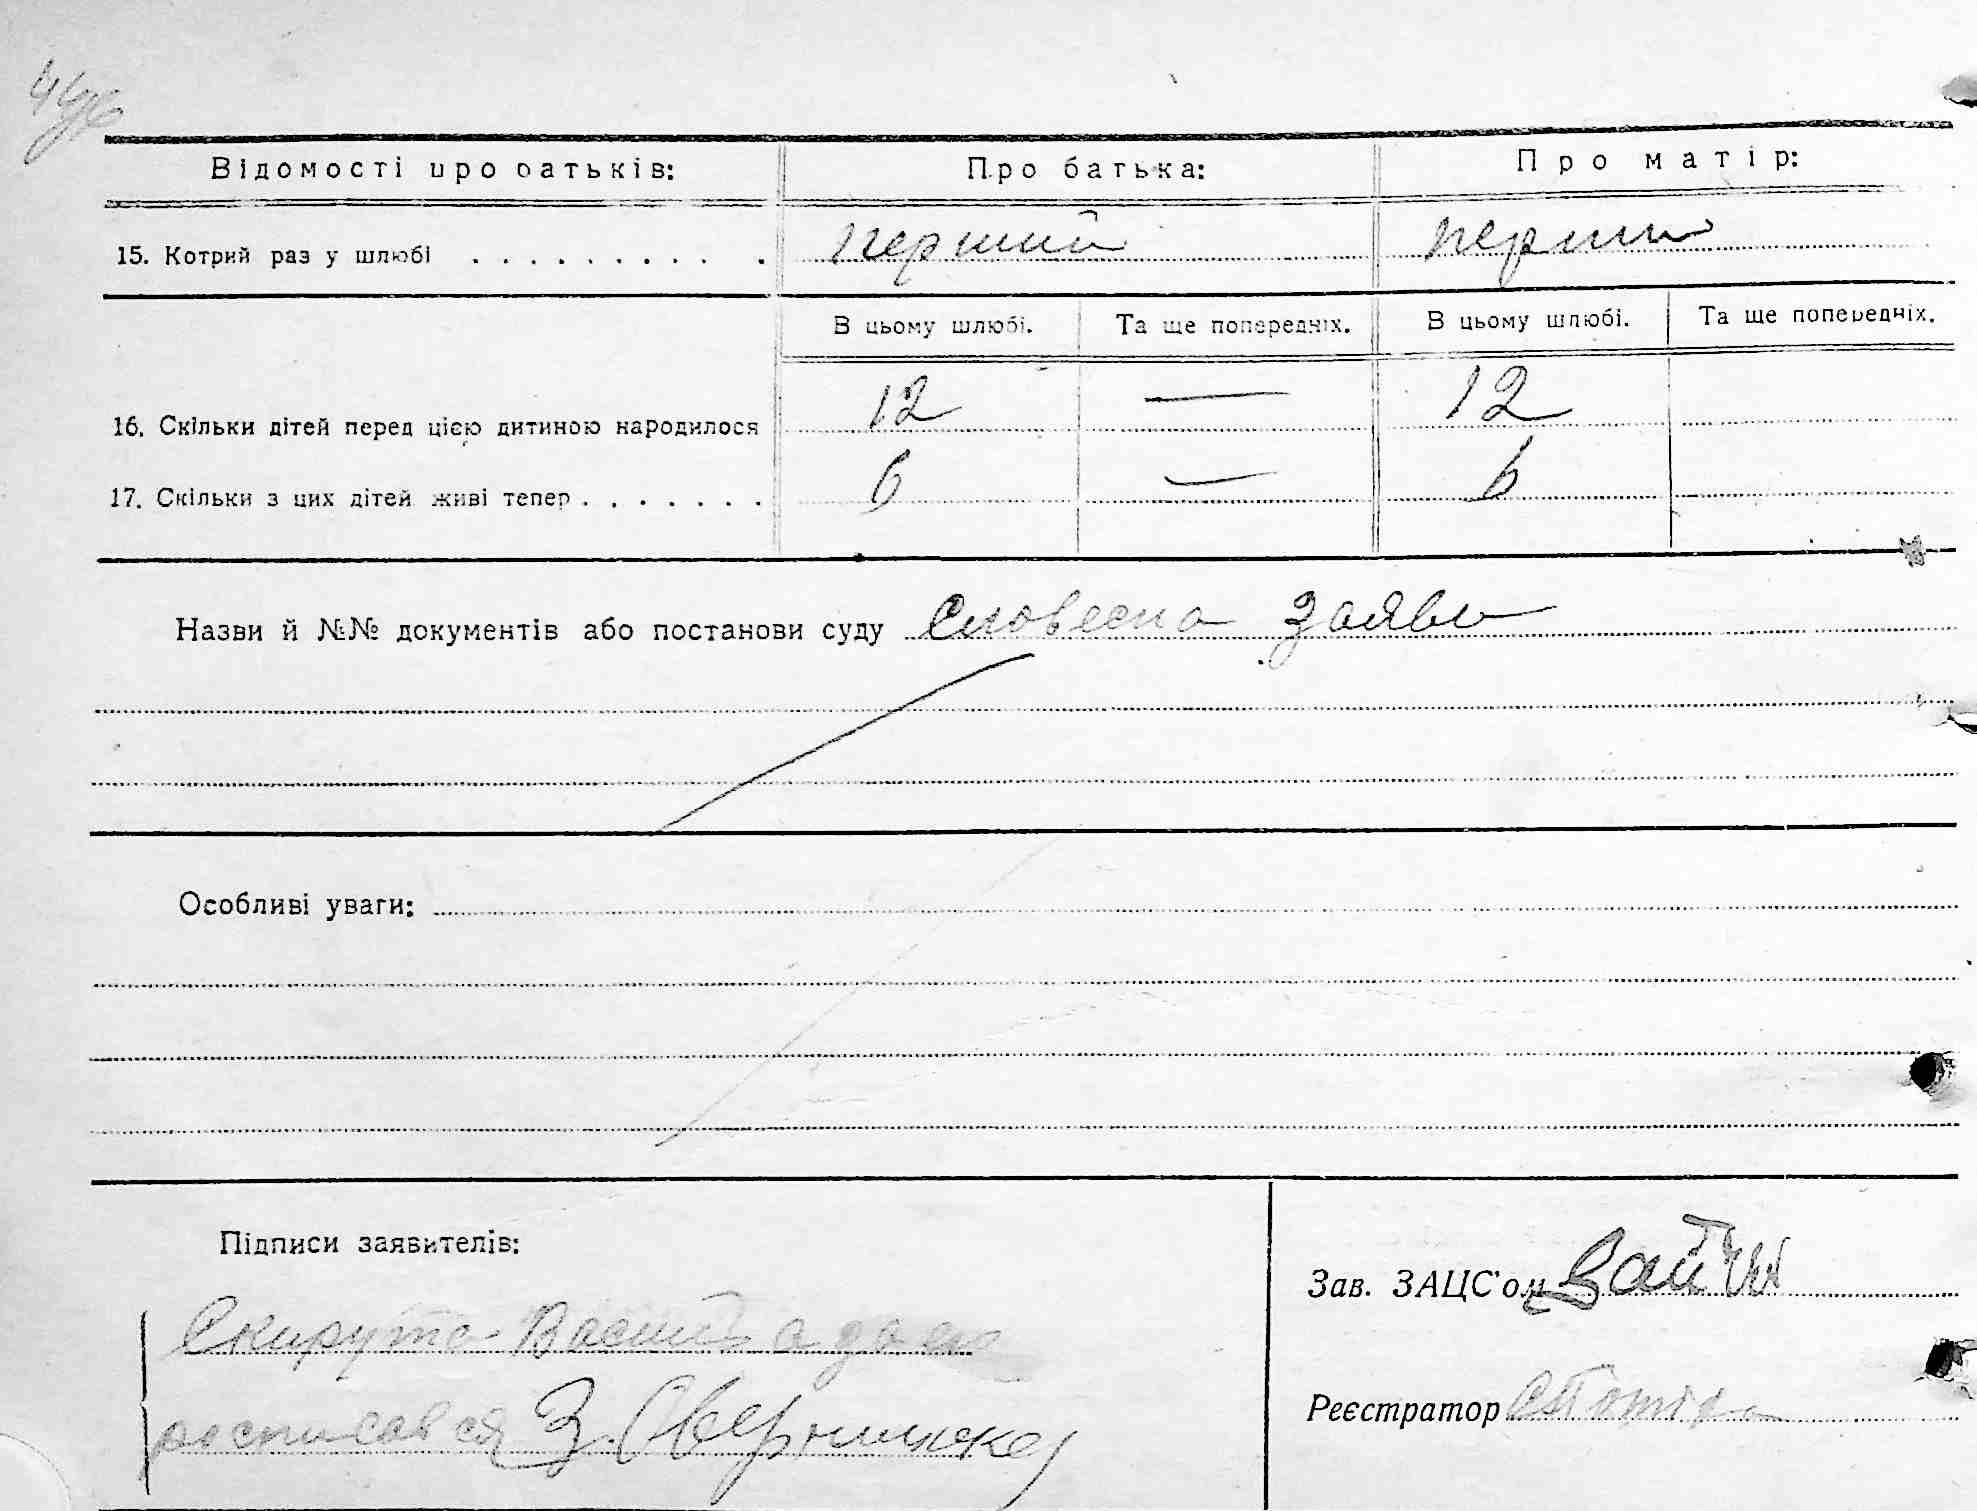 Відомості про батьків: Про батька: Про матір:
15. Котрий раз у шлюбі . . . . . . . . . . перший перший
В цьому шлюбі. Та ще попередніх. В цьому шлюбі. Та ще попередніх.
16. Скільки дітей перед цією дитиною народилося 12 — 12
17. Скільки з цих дітей живі тепер . . . . . . . 6 — 6
Назви й №№ документів або постанови суду Словесна заява
Особливі уваги:
Підписи заявителів:
Зав. ЗАЦС'ом
Реєстратор
росписався З.